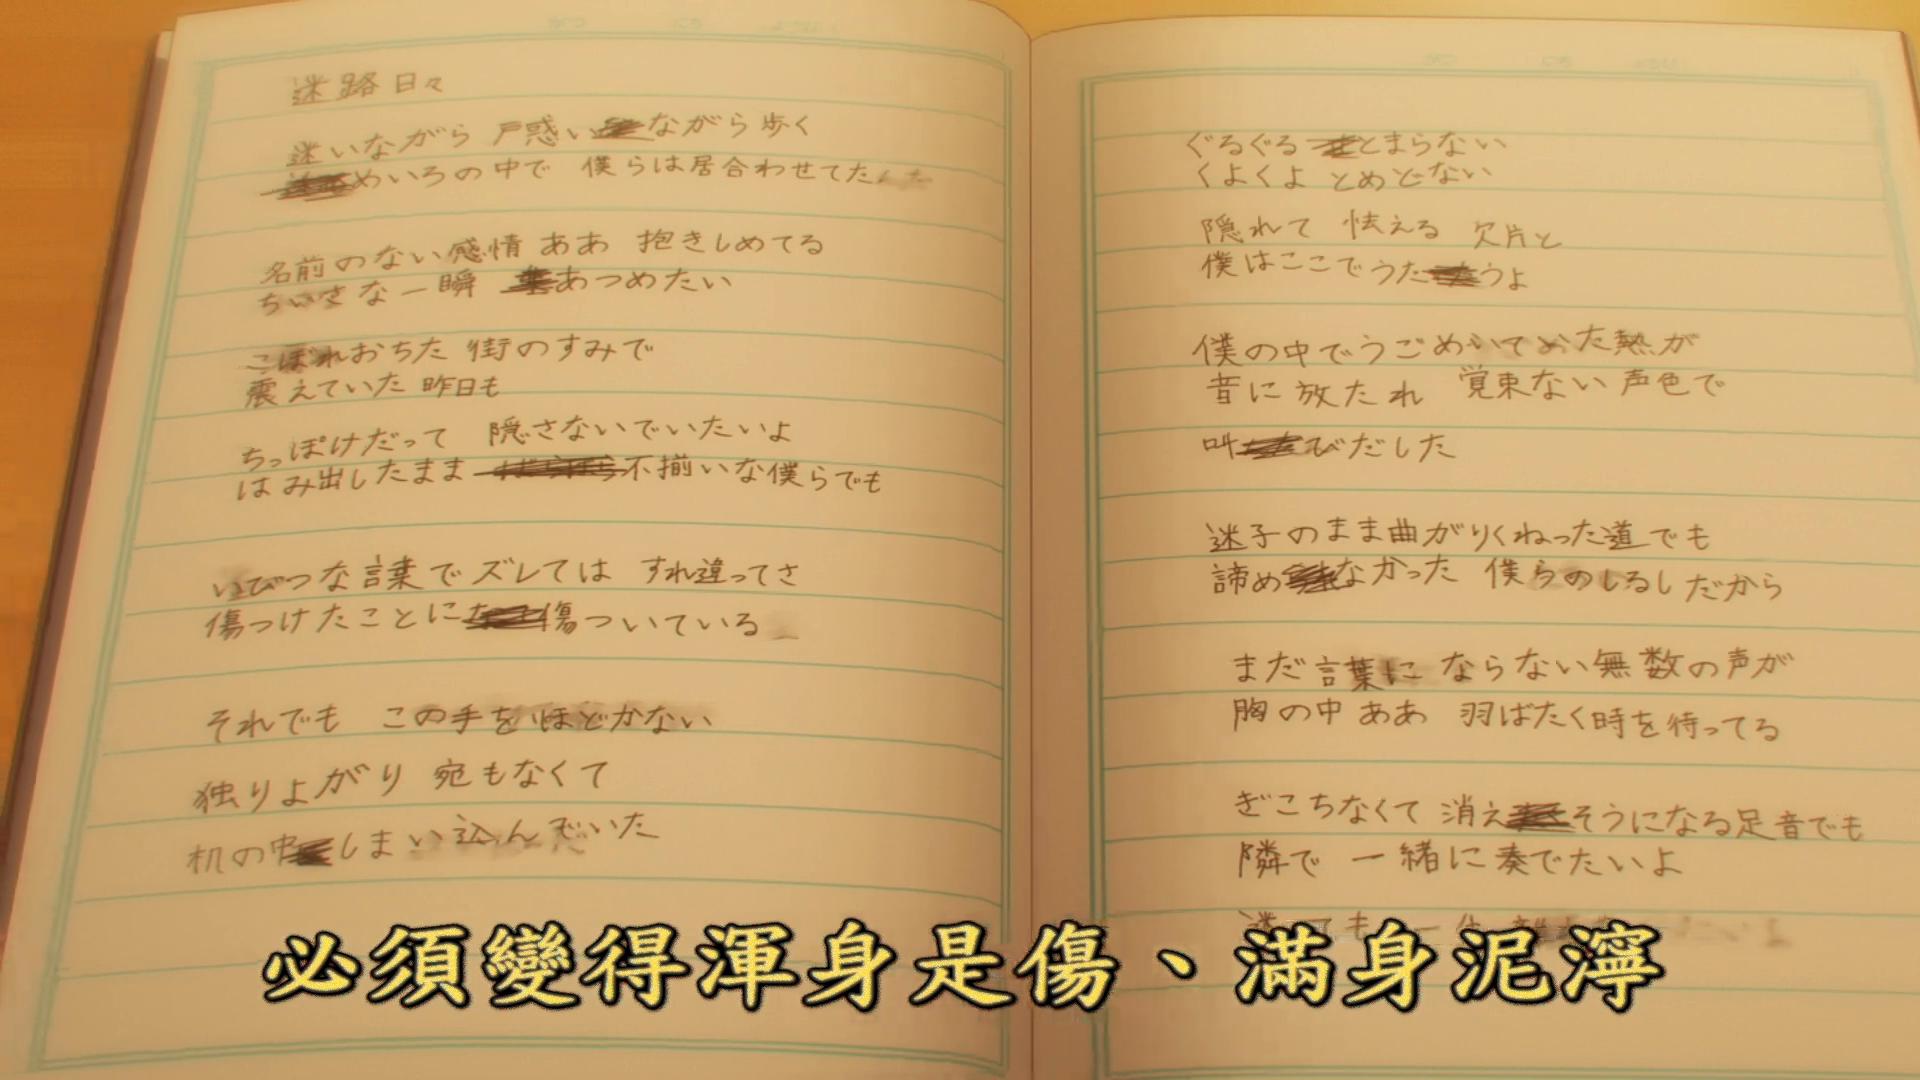 迷路日々
迷いながら 戸惑いながら歩く
めいろの中で 僕らは居合わせてた
名前のない感情 ああ 抱きしめてる
ちいさな一瞬 あつめたい
こぼれおちた 街のすみで
震えていた 昨日も
ちっぽけだって 隠さないでいたいよ
はみ出したまま 不揃いな僕らでも
いびつな言葉でズレては すれ違ってさ
傷つけたことに傷ついている
それでも この手をほどかない
独りよがり 宛もなくて
机の中しまい込んでいた
ぐるぐる とまらない
くよくよ とめどない
隠れて 怯える 欠片と
僕はここでうたうよ
僕の中でうごめいてた熱が
音に放たれ 覚束ない声色で
叫びだした
迷子のまま曲がりくねった道でも
諦めなかった 僕らのしるしだから
まだ言葉に ならない無数の声が
胸の中 ああ 羽ばたく時を待ってる
ぎこちなくて 消えそうになる足音でも
隣で 一緒に奏でたいよ
必須變得渾身是傷、滿身泥濘